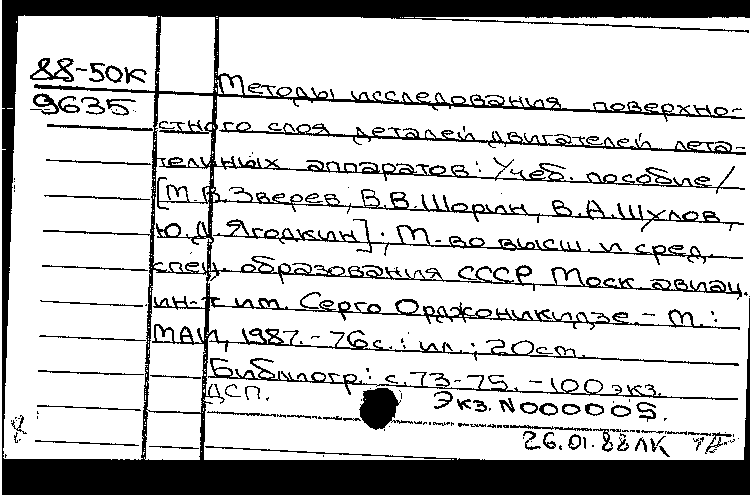 88-50К
9635
Методы исследования поверхно-
стного слоя деталей двигателей лета-
тельных аппаратов: Учеб. пособие/
[М.В.Зверев, В.В.Шорин, В.А.Шухлов,
Ю.Д. Ягодкин]; М-во высш. и сред.
спец. образования СССР, Моск. авиац.
ин-т им. Серго Орджоникидзе. - М.:
МАИ, 1987. - 76 с.: ил.; 20 см.
Библиогр.: с. 73-75. - 100 экз.
ДСП.
Экз. N000005.
26.01.88 ЛК